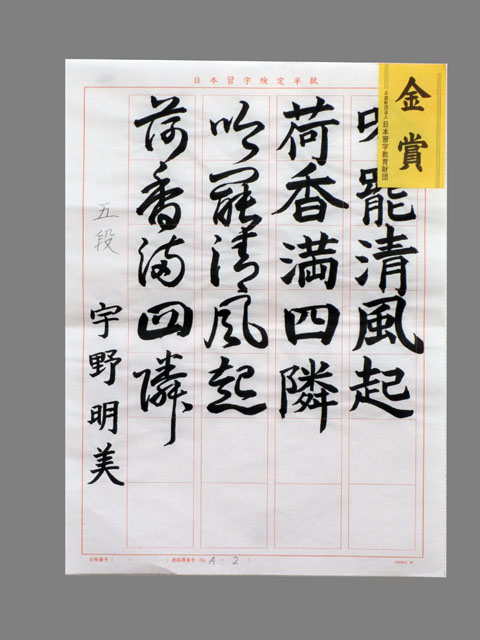 日本習字検定半紙
金賞
公益財団法人 日本習字教育財団
吟罷清風起
荷香満四隣
吟罷清風起
荷香満四隣
五段
宇野明美
A-2